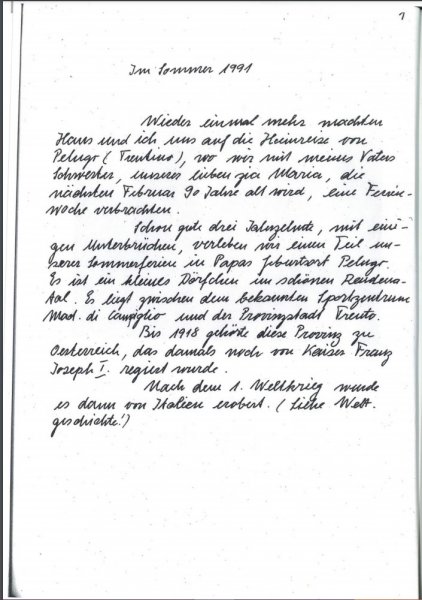 1
Im Sommer 1991
Wieder einmal mehr machten
Hans und ich uns auf die Heimreise von
Pelugo (Trentino), wo wir mit meines Vaters
Schwester, unserer lieben zia Maria, die
nächsten Februar 90 Jahre alt wird, eine Ferien-
woche verbrachten.
Schon gute drei Jahrzehnte, mit eini-
gen Unterbrüchen, verleben wir einen Teil un-
serer Sommerferien in Papas Geburtsort Pelugo.
Es ist ein kleines Dörfchen im schönen Rendena-
tal. Es liegt zwischen dem bekannten Sportzentrum
Mad. di Campiglio und der Provinzstadt Trento.
Bis 1918 gehörte diese Provinz zu
Oesterreich, das damals noch von Kaiser Franz
Joseph I. regiert wurde.
Nach dem 1. Weltkrieg wurde
es dann von Italien erobert. (Siehe Welt-
geschichte!)